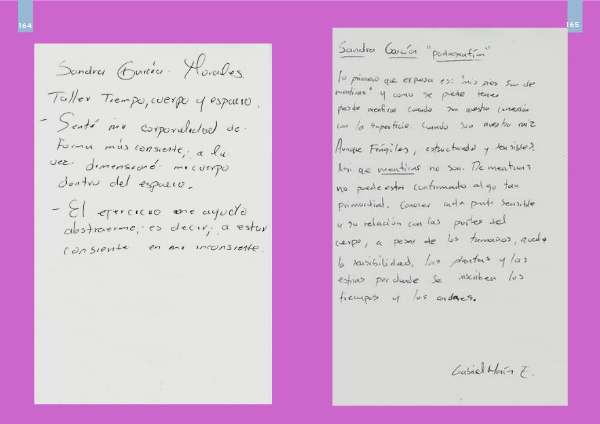 164
Sandra García Morales
Taller Tiempo, cuerpo y espacio.
- Sentí mi corporalidad de
forma más consiente; a la
vez dimensioné mi cuerpo
dentro del espacio.
- El ejercicio me ayudó
abstraerme, es decir; a estar
consiente en mi inconsiente.
165
Sandra García
Lo primero que expresa es: "mis pies son de
mentiras" y como se puede tener
pueda mentiras cuando son nuestra conexión
con la superficie. Cuando son nuestra raíz
Aunque Frágiles, estructurados y sensibles.
Así que mentiras no son. De mentiras
no puede estar conformado algo tan
primordial. Conocer cada punto sensible
y su relación con las partes del
cuerpo, a pesar de los tamaños, queda
la sensibilidad, las plantas y las
estrías por donde se inscriben los
tiempos y los andares.
Gabriel E.